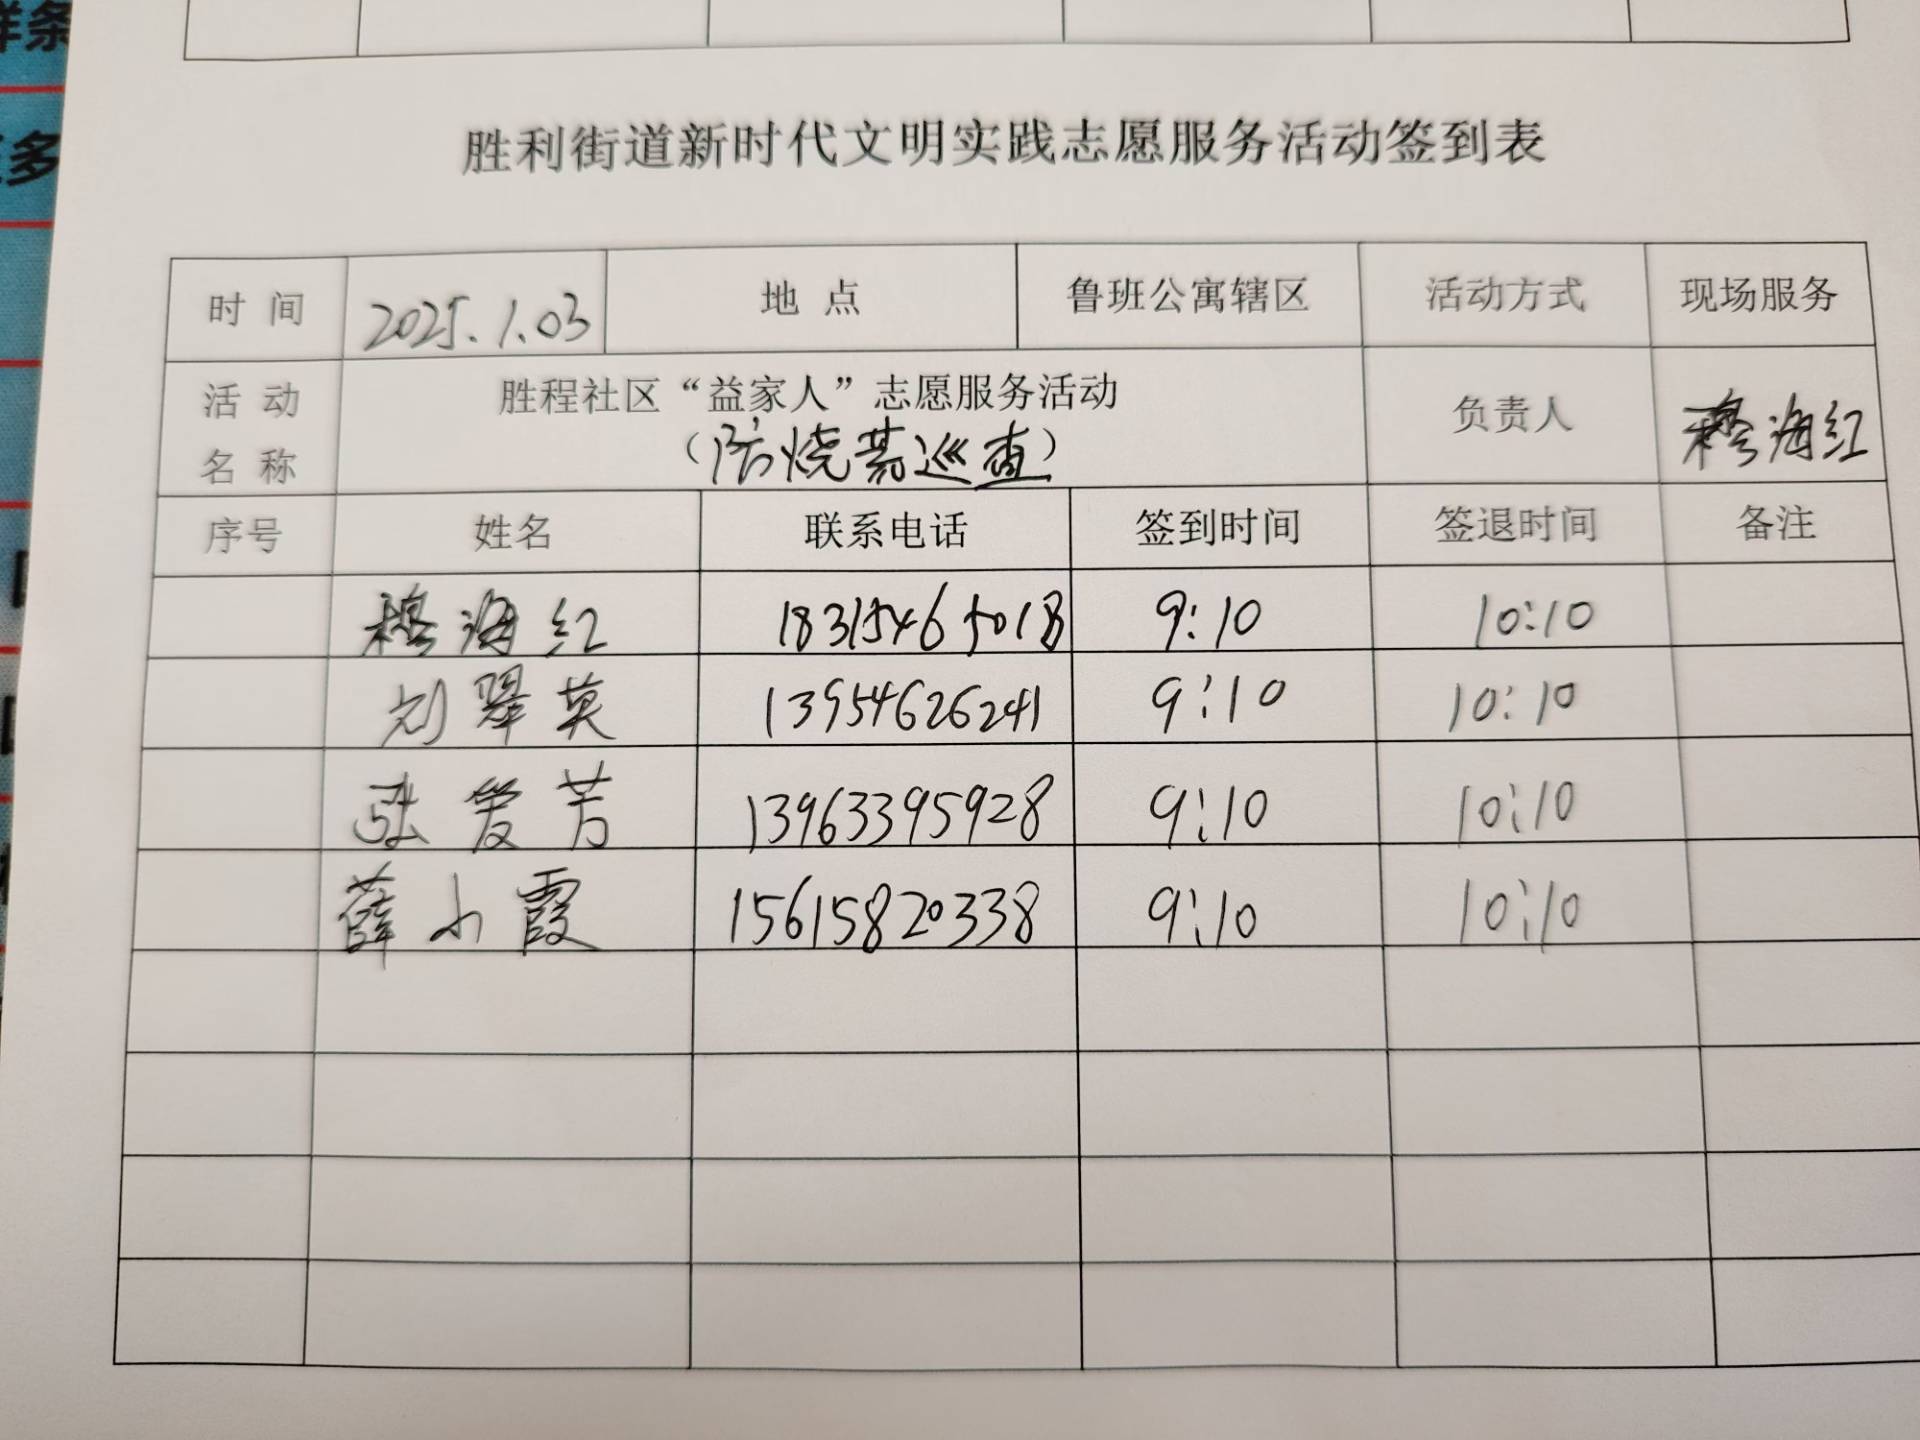 胜利街道新时代文明实践志愿服务活动签到表
时 间 2025.1.03 地 点 鲁班公寓辖区 活动方式 现场服务
活 动 名 称 胜程社区“益家人”志愿服务活动 负责人 穆海红
（防烧荒巡查）
序号 姓名 联系电话 签到时间 签退时间 备注
穆海红 18315465018 9:10 10:10
刘翠英 13954626241 9:10 10:10
张爱芳 13963395928 9:10 10:10
薛小霞 15615820338 9:10 10:10